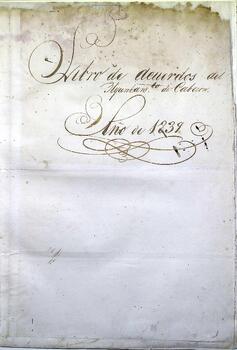 Libro de Acuerdos del
Ayuntam.to de Cabezon.
Año de 1839